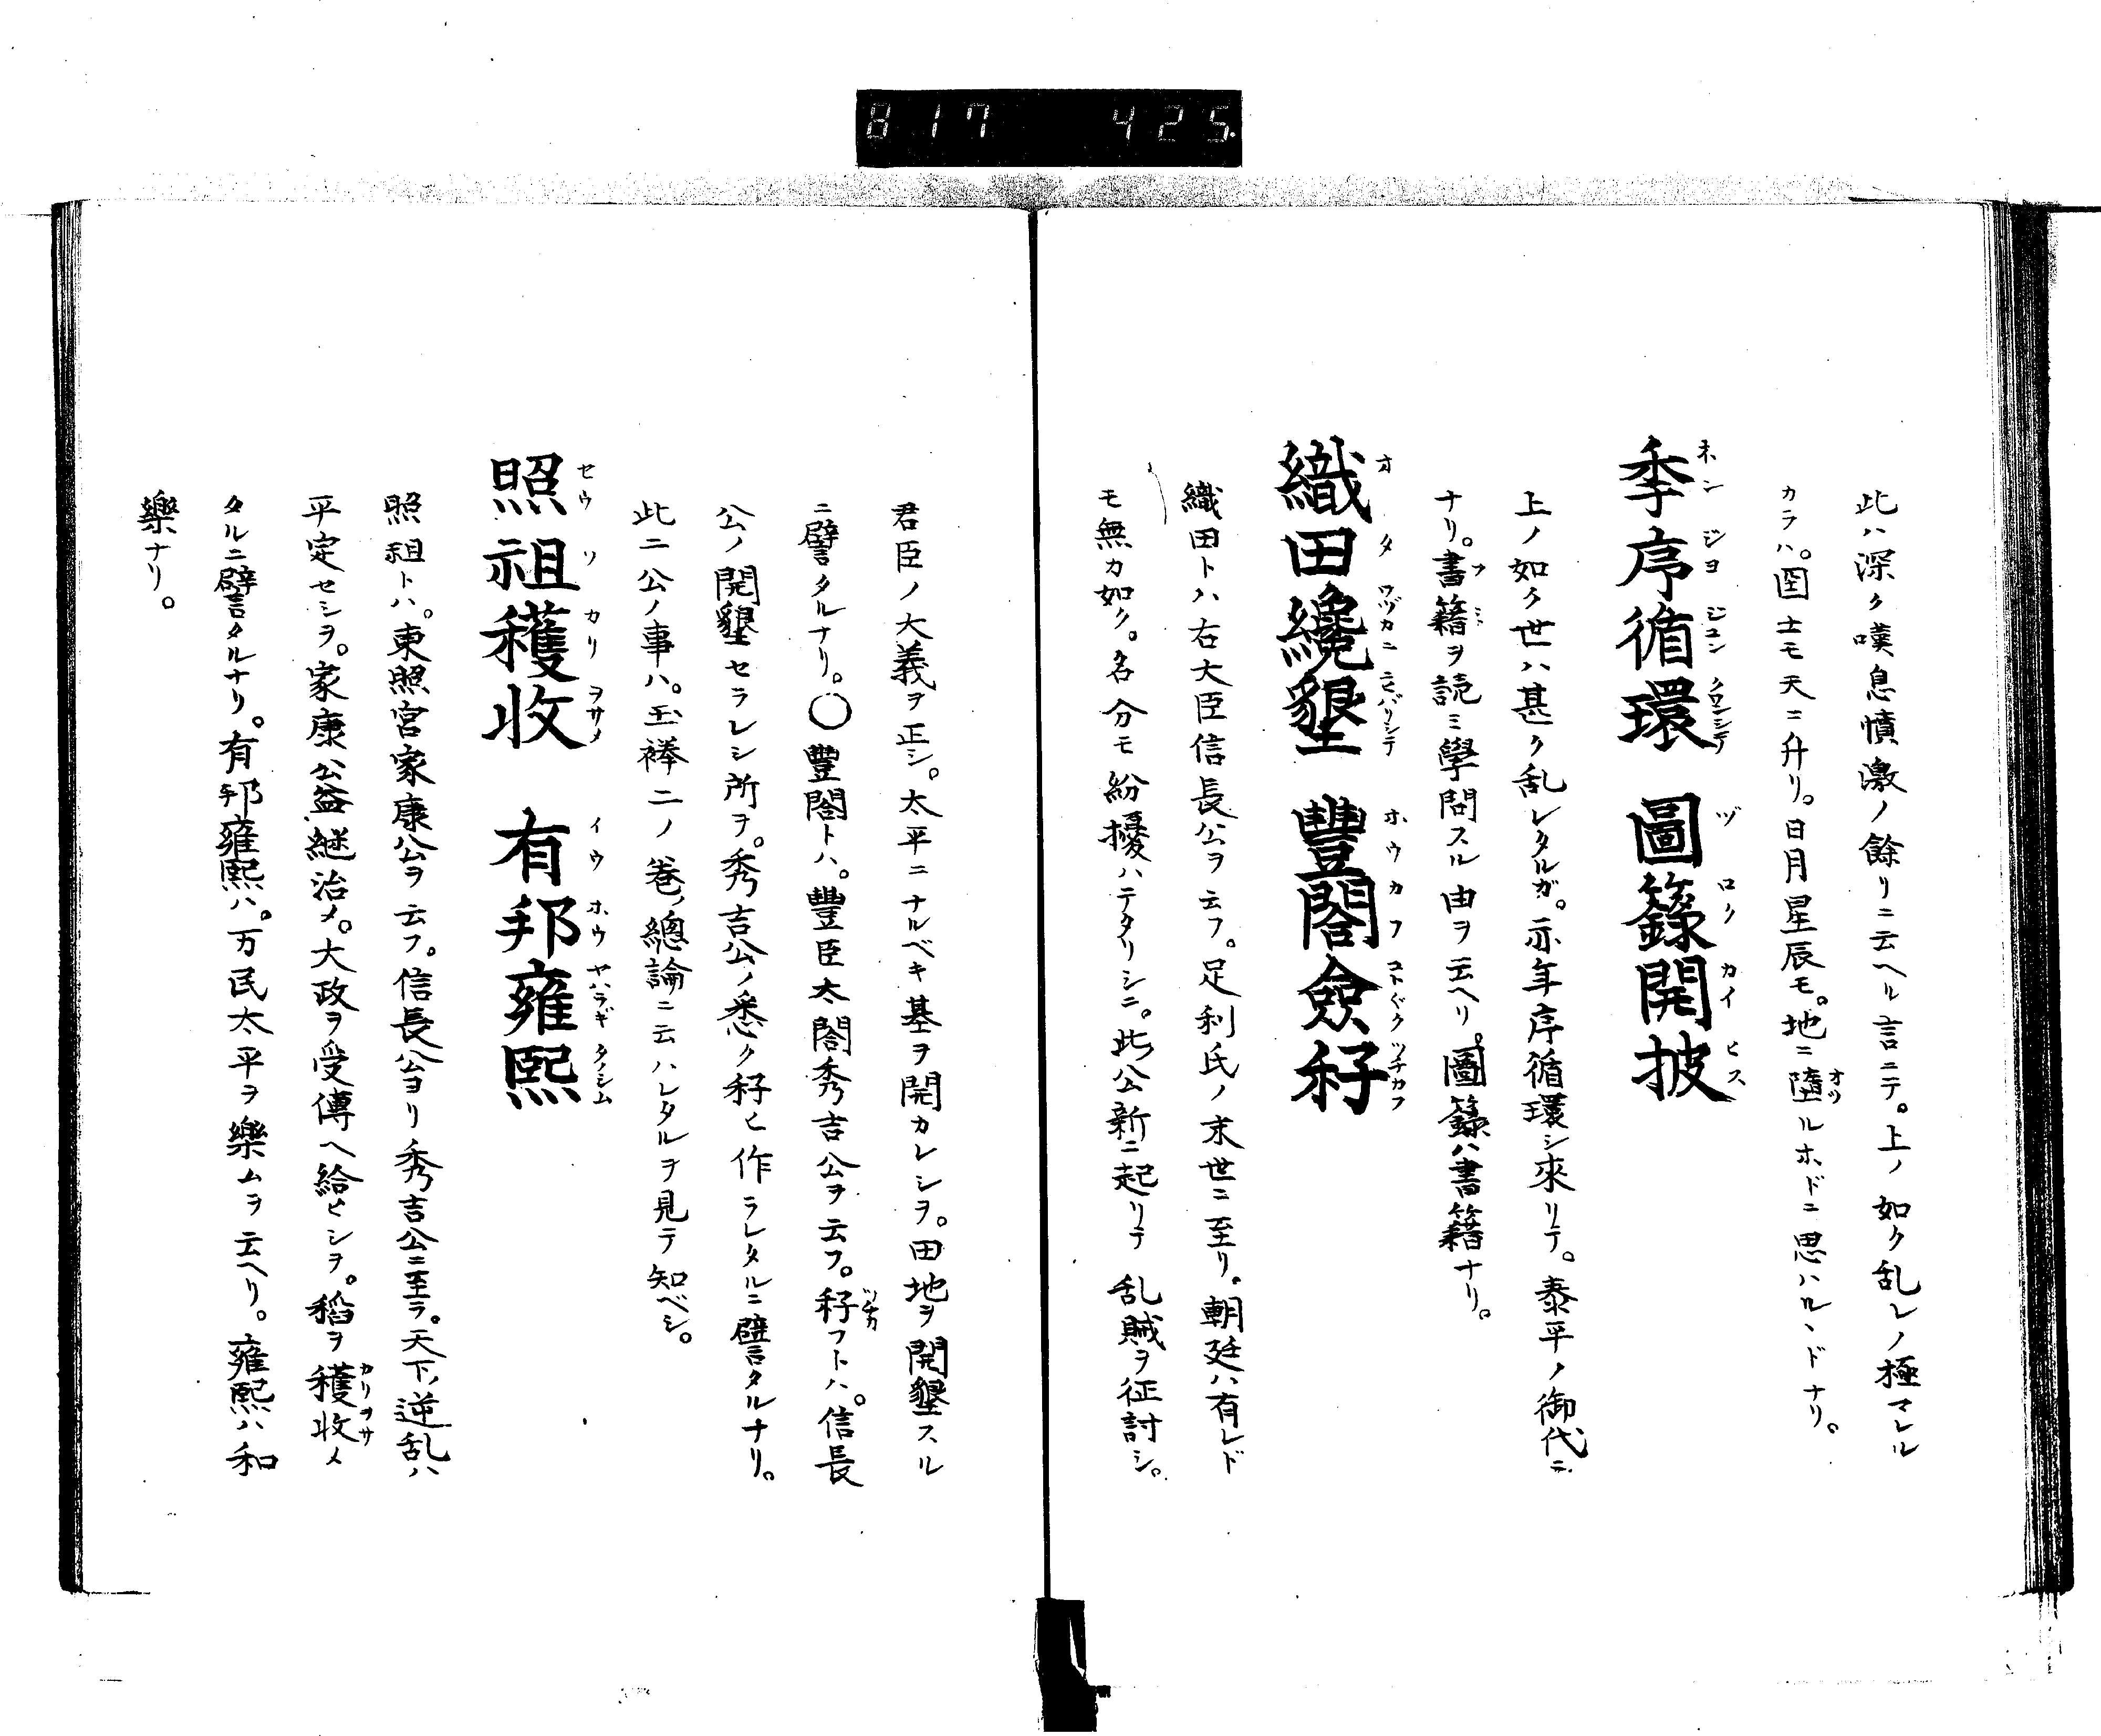 817 425.
此ハ深ク嘆息憤激ノ餘リニ云ヘル言ニテ。上ノ如ク乱レノ極マレル
カラハ。国土モ天ニ升リ。日月星辰モ。地ニ墮ルホドニ思ハルヽドナリ。
季序循環 圖籙開披
上ノ如ク世ハ甚ク乱レタルガ。亦年序循環シ來リテ。泰平ノ御代ニ
ナリ。書籍ヲ読ミ學問スル由ヲ云ヘリ。圖籙ハ書籍ナリ。
織田纔墾 豐閣僉秄
織田トハ右大臣信長公ヲ云フ。足利氏ノ末世ニ至リ。朝廷ハ有レド
モ無カ如ク。名分モ紛擾ハテタリシニ。此公新ニ起リテ乱賊ヲ征討シ。
君臣ノ大義ヲ正シ。太平ニナルベキ基ヲ開カレシヲ。田地ヲ開墾スル
ニ譬タルナリ。〇豐閣トハ。豐臣太閤秀吉公ヲ云フ。秄フトハ。信長
公ノ開墾セラレシ所ヲ。秀吉公ノ悉ク秄ヒ作ラレタルニ譬タルナリ。
此二公ノ事ハ。玉襷二ノ巻ノ總論ニ云ハレタルヲ見テ知ベシ。
照祖穫收 有邦雍熙
照祖トハ。東照宮家康公ヲ云フ。信長公ヨリ秀吉公ニ至ラ。天下ノ逆乱ハ
平定セシヲ。家康公益継治メ。大政ヲ受傳ヘ給ヒシヲ。稻ヲ穫收メ
タルニ譬タルナリ。有邦雍熙ハ。万民太平ヲ樂ムヲ云ヘリ。雍熙ハ和
樂ナリ。